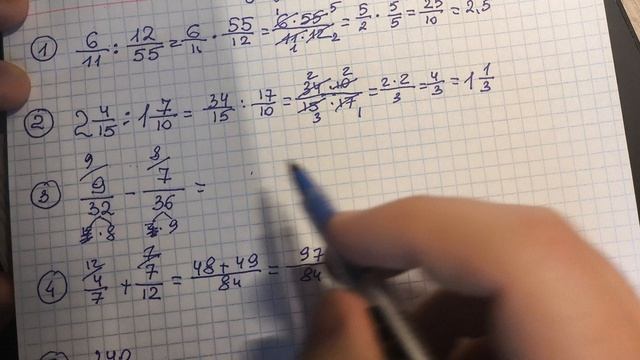 ① 6/11 : 12/55 = 6/11 · 55/12 = 6·55/11·12 = 5/2 · 5/5 = 25/10 = 2,5
② 2 4/15 : 1 7/10 = 34/15 : 17/10 = 34·10/15·17 = 2·2/3 = 4/3 = 1 1/3
③ 9/32 - 7/36 =
④ 4/7 + 7/12 = 48+49/84 = 97/84
240